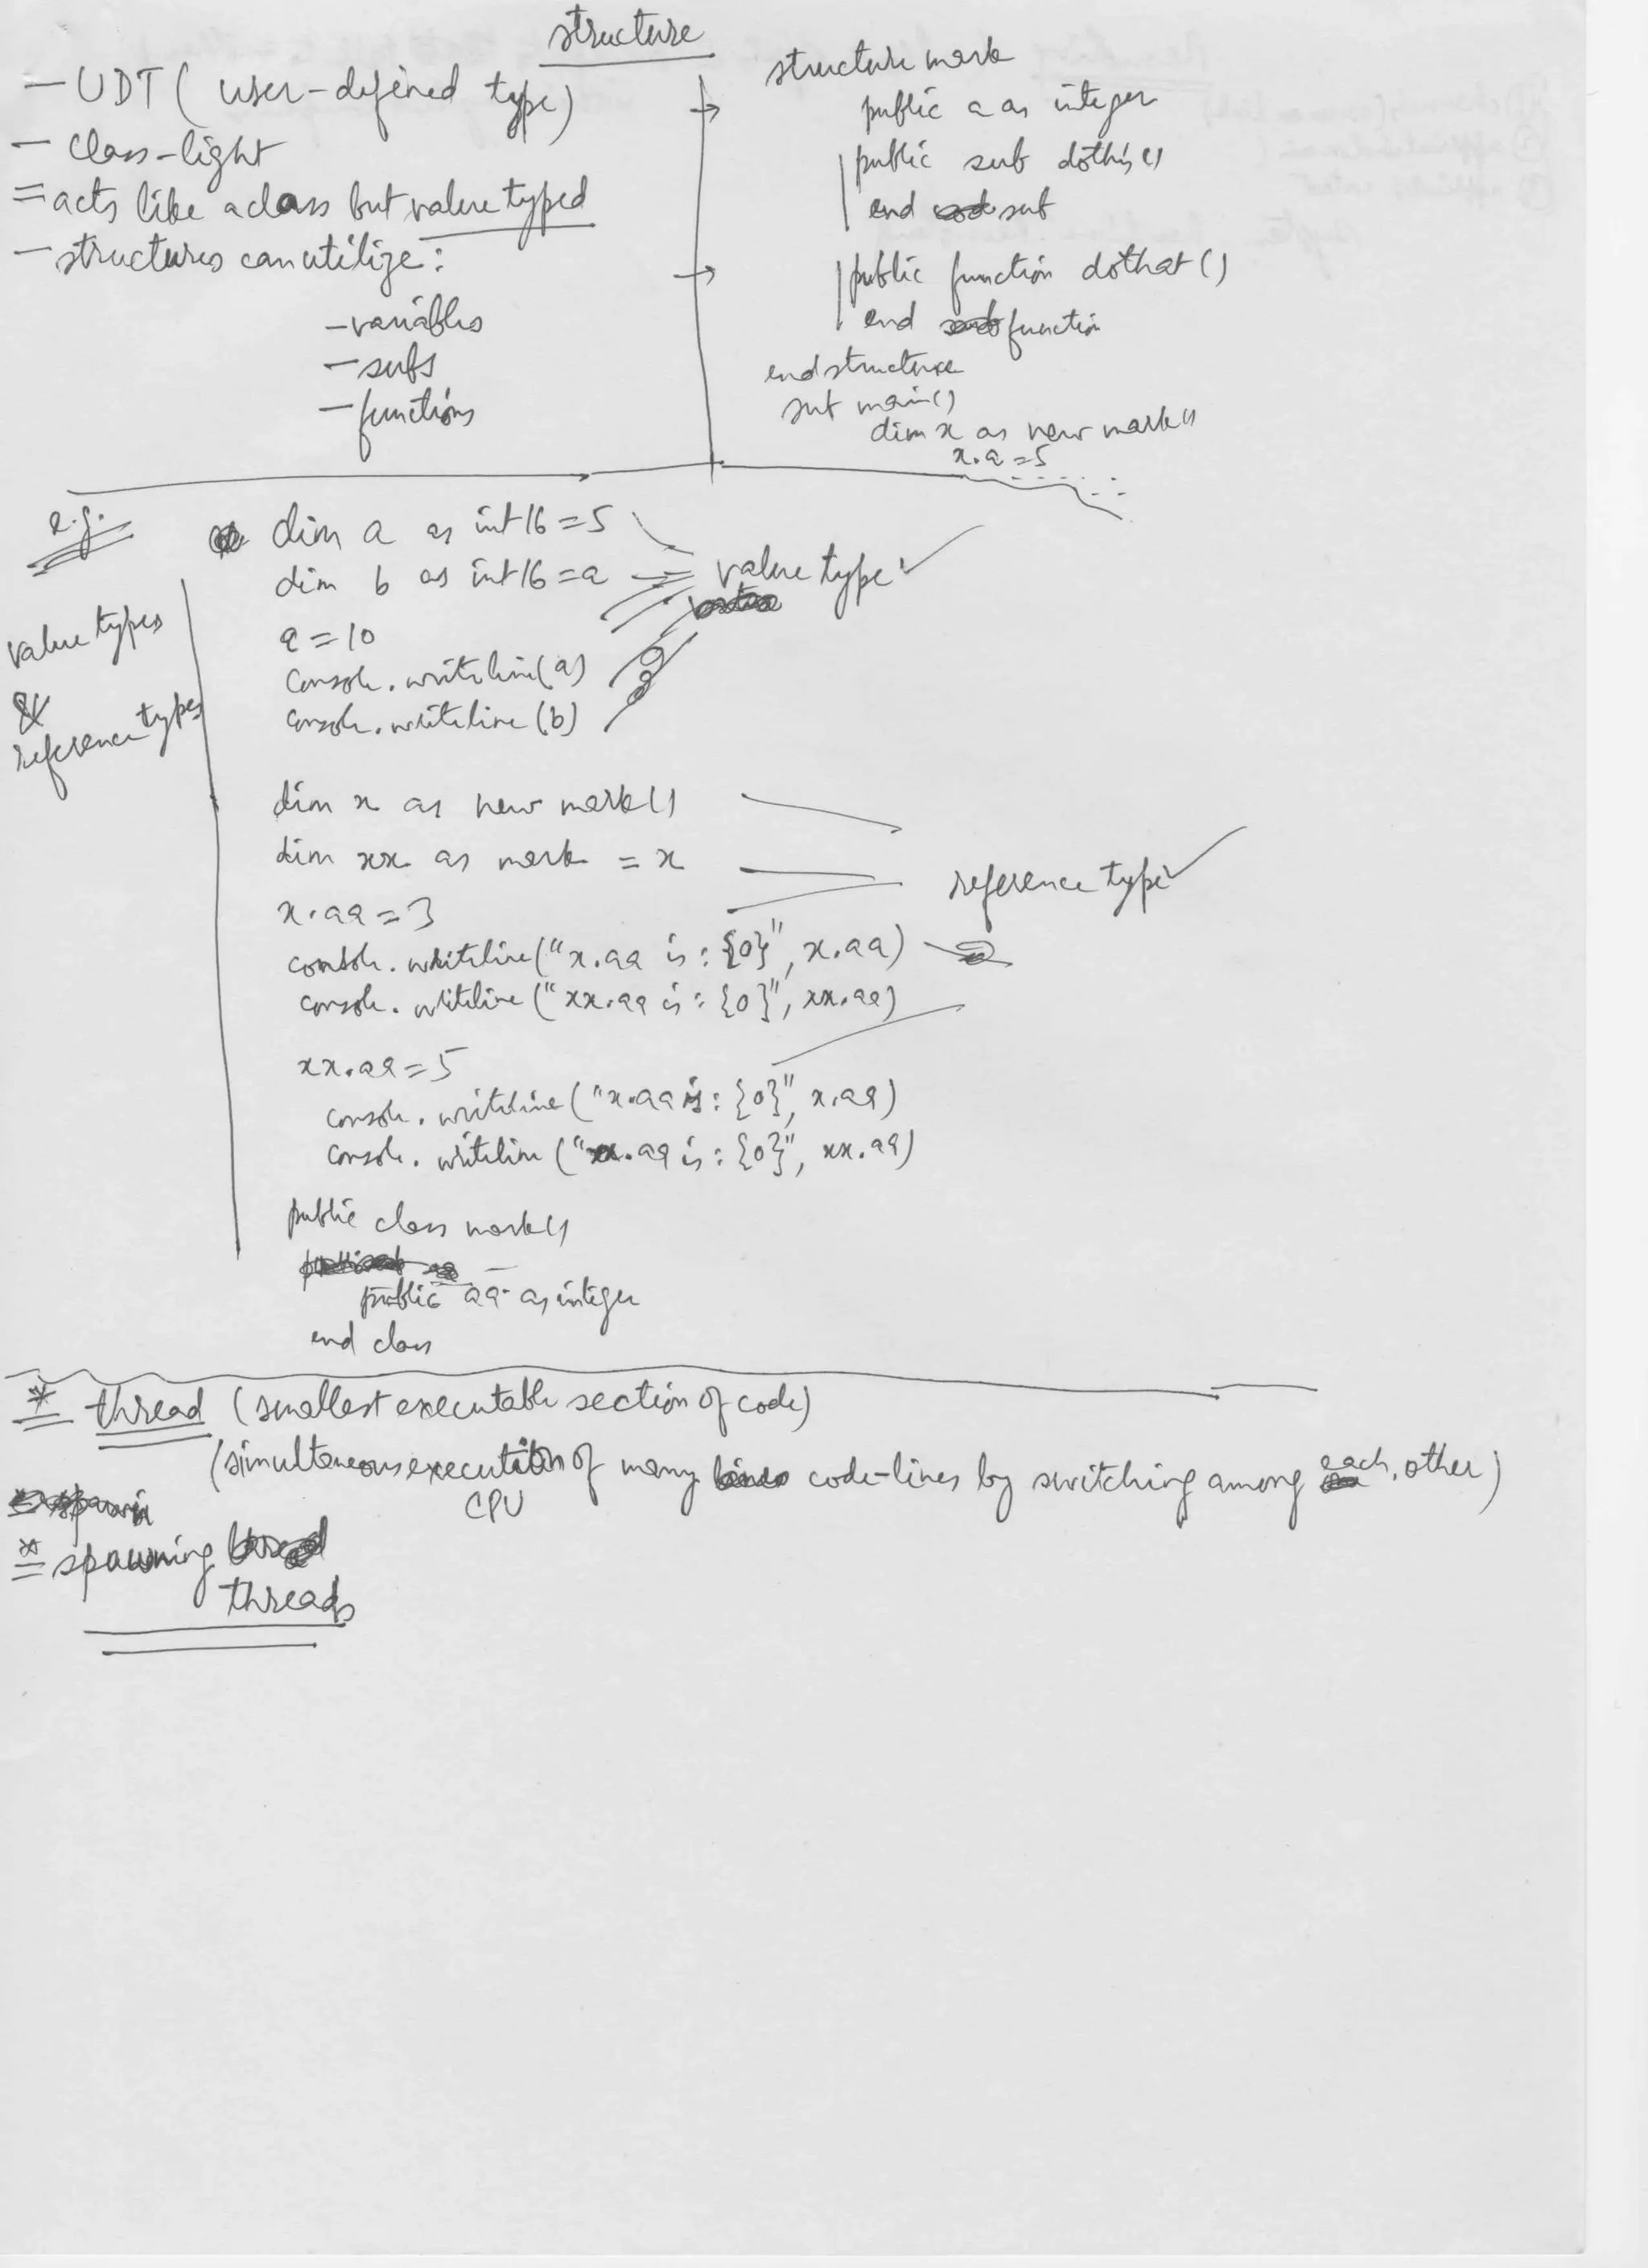 structure
— UDT ( user-defined type)
— class-light
= acts like a class but value typed
— structures can utilize :
— variables
— subs
— functions
structure mark
public a as integer
public sub dothis()
end sub
public function dothat()
end function
end structure
sub main()
dim x as new mark()
x.a = 5
e.g.
value types
&
reference types
dim a as int16 = 5
dim b as int16 = a
value type
a = 10
console.writeline(a)
console.writeline(b)
dim x as new mark()
dim xx as mark = x
reference type
x.aa = 3
console.writeline("x.aa is : {0}", x.aa)
console.writeline("xx.aa is : {0}", xx.aa)
xx.aa = 5
console.writeline("x.aa is : {0}", x.aa)
console.writeline("xx.aa is : {0}", xx.aa)
public class mark()
public aa as integer
end class
* thread (smallest executable section of code)
(simultaneous execution of many code-lines by switching among each other)
CPU
* spawning
threads